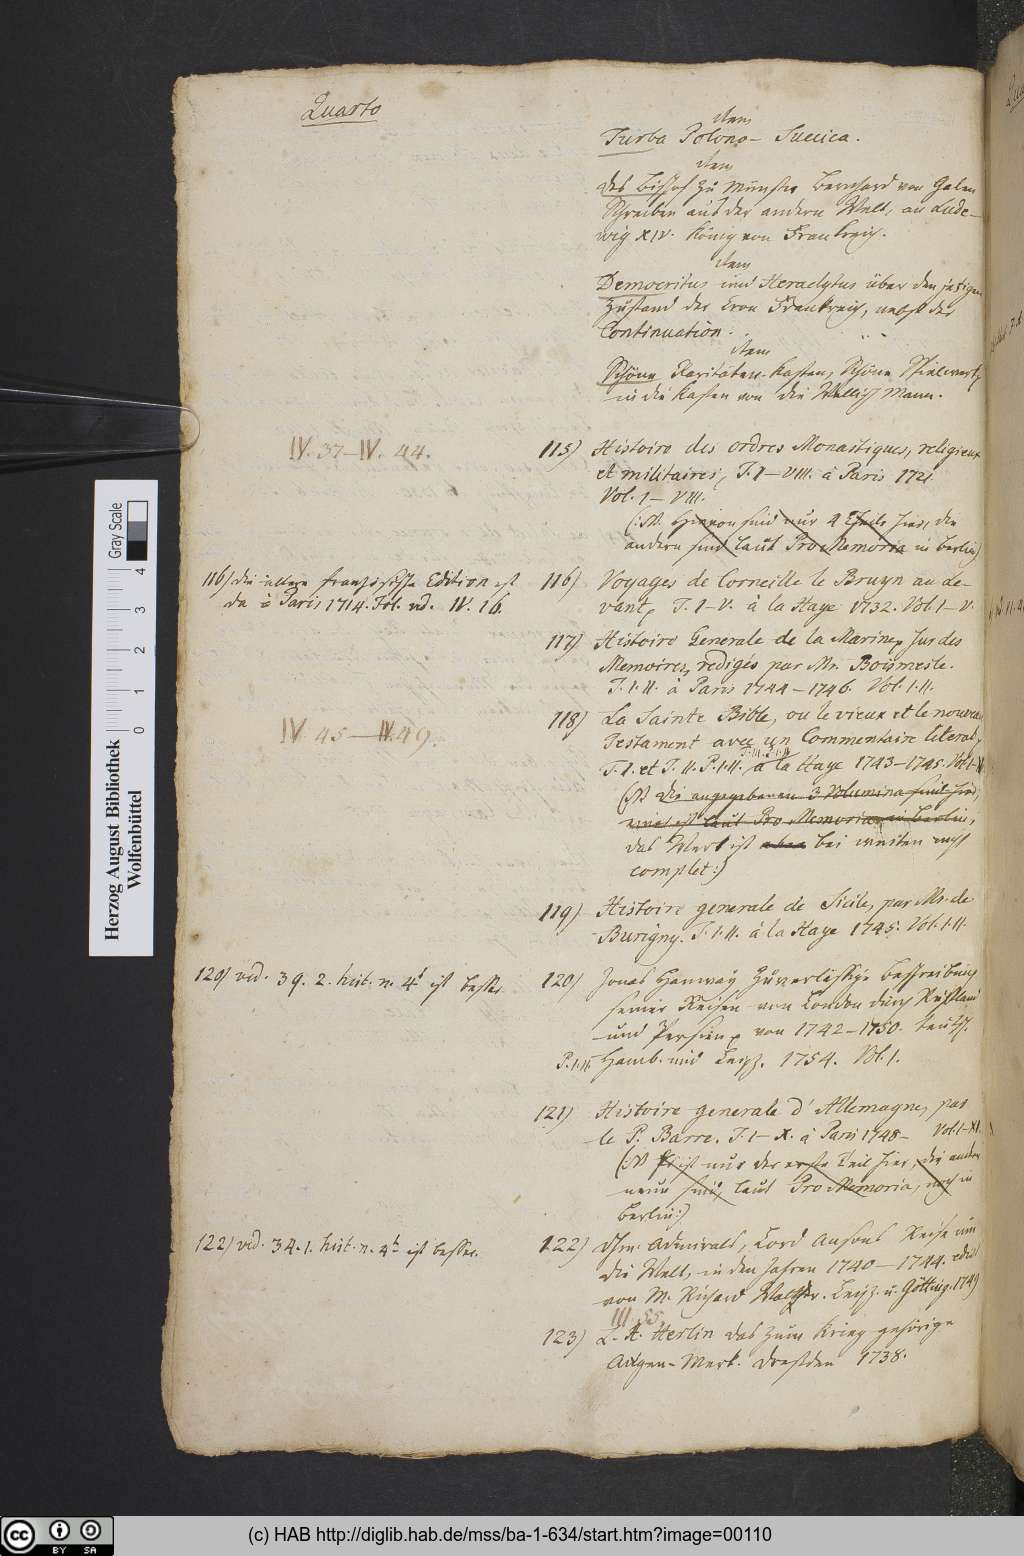 Quarto
item
Turba Polono-Suecica.
item
des Bischof zu Münster Bernhard von Galen
Schreiben aus der andern Welt, an Lude-
wig XIV. König von Frankreich.
item
Democritus und Heraclytus über den jetzigen
Zustand der Cron Frankreich, nebst der
Continuation.
item
Schöne Raritäten-Kasten, Schöne Spielwerk
in die Kasten von die Wellisch Mann.
IV. 37–IV. 44.
115) Histoire des ordres Monastiques, religieux
et militaires, T. I–VIII. à Paris 1721.
Vol. I–VIII.
(:NB. Hiervon sind nur 4 Theile hier, die
andern sind laut Pro Memoria in Berlin)
116) die ältere französische Edition ist
da à Paris 1714. Fol. vid. IV. 16.
116) Voyages de Corneille le Bruyn au Le-
vant, T. I–V. à la Haye 1732. Vol. I–V.
117) Histoire Generale de la Marine, sur des
Memoires, redigés par Mr. Boismesle.
T. I. II. à Paris 1744–1746. Vol. I. II.
IV. 45–IV. 49.
118) La Sainte Bible, ou le vieux et le nouveau
Testament avec un Commentaire literal,
T. I. et T. II. P. I. II. à la Haye 1743–1745. Vol. I–
(NB die angegebenen 3 Volumina sind hier,
eines ist laut Pro Memoria in Berlin,
das Werk ist aber bei weiten nicht
complet:)
119) Histoire generale de Sicile, par Mr. de
Burigny. T. I. II. à la Haye 1745. Vol. I. II.
120) vid. 39. 2. hist. n. 4t ist besser
120) Jonas Hanway Zuverlässige Beschreibung
seiner Reisen von London durch Rußland
und Persien, von 1742–1750. teutsch.
P. I. II. Hamb. und Leipz. 1754. Vol. I.
121) Histoire generale d'Allemagne, par
le P. Barre. T. I–X. à Paris 1748– Vol. I–XI.
(:NB Es ist nur der erste Teil hier, die andern
neun sind, laut Pro Memoria, noch in
Berlin:)
122) vid. 34. 1. hist. n. 4b ist besser.
122) Dhrn. Admirals, Lord Ansons Reise um
die Welt, in den Jahren 1740–1744. edid.
von M. Richard Walther. Leipz. u. Götting. 1749
III. 55.
123) L. H. Herlin das zum Krieg gehörige
Augen-Merk. Dreßden 1738.
Herzog August Bibliothek
Wolfenbüttel
Gray Scale
0 1 2 3 4
cc BY SA
(c) HAB http://diglib.hab.de/mss/ba-1-634/start.htm?image=00110